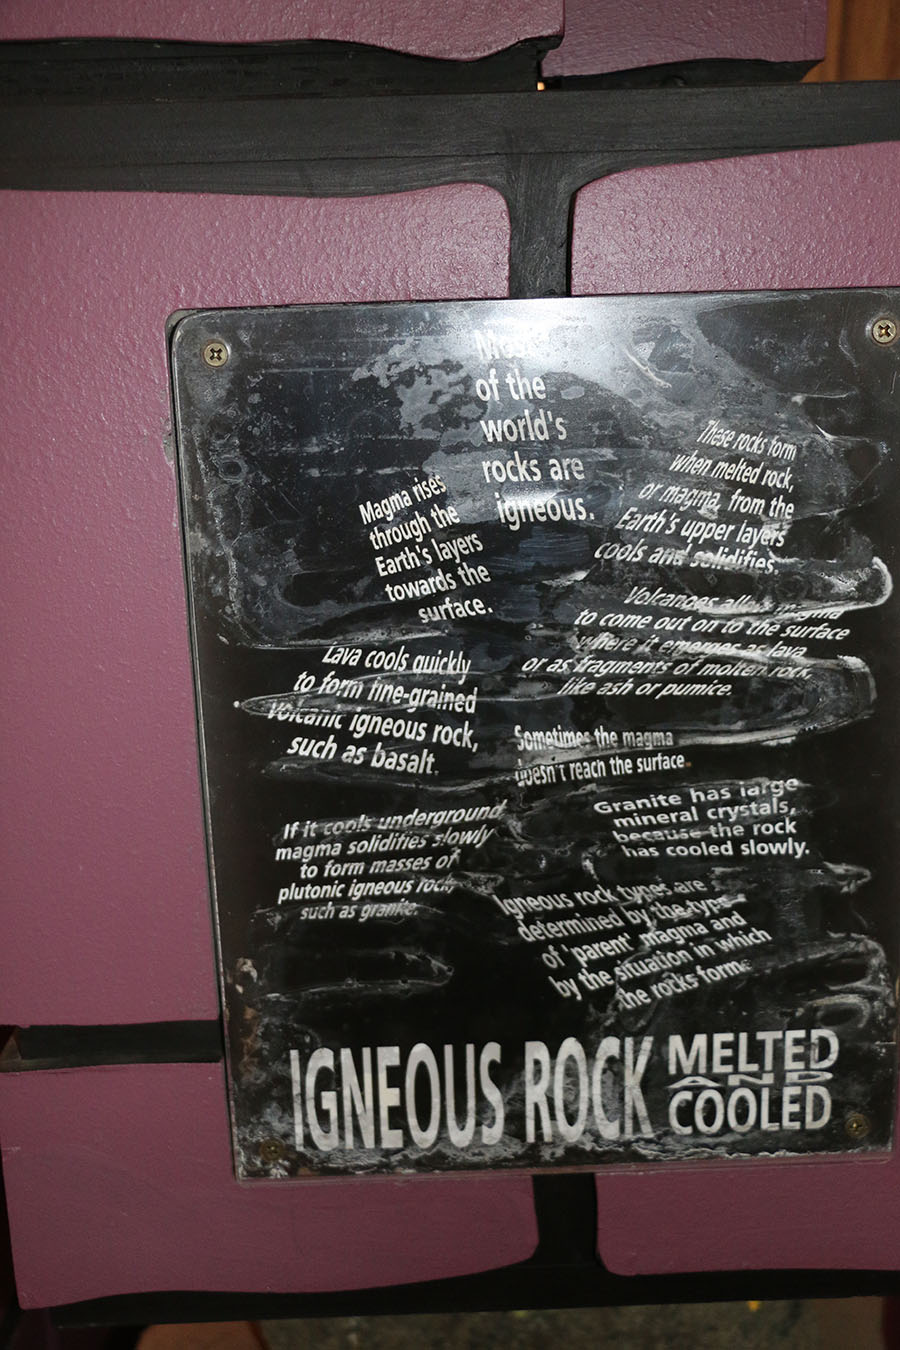 Most
of the
world's
rocks are
igneous.
These rocks form
when melted rock,
or magma, from the
Earth's upper layers
cools and solidifies.
Magma rises
through the
Earth's layers
towards the
surface.
Volcanoes allow magma
to come out on to the surface
where it emerges as lava
or as fragments of molten rock,
like ash or pumice.
Lava cools quickly
to form fine-grained
volcanic igneous rock,
such as basalt.
Sometimes the magma
doesn't reach the surface.
Granite has large
mineral crystals,
because the rock
has cooled slowly.
If it cools underground
magma solidifies slowly
to form masses of
plutonic igneous rock,
such as granite.
Igneous rock types are
determined by the type
of 'parent' magma and
by the situation in which
the rocks form.
IGNEOUS ROCK MELTED
AND
COOLED